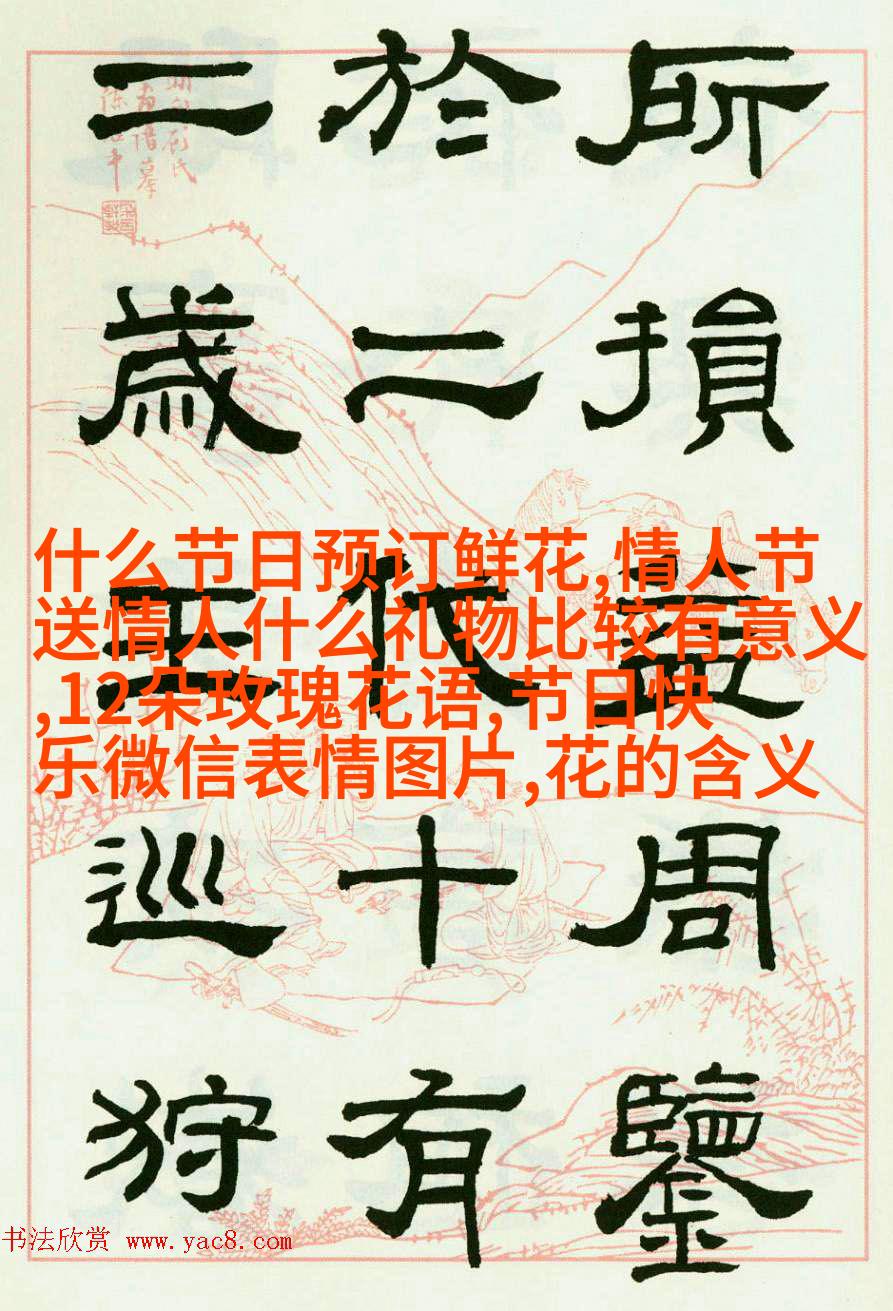 所損益周鑒
於二代十有
二歲王巡狩
什么节日预订鲜花,情人节
送情人什么礼物比较有意义
,12朵玫瑰花语,节日快
乐微信表情图片,花的含义
书法欣赏 www.yac8.com